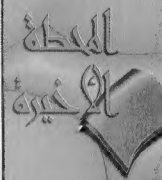 المحطة
الأخيرة